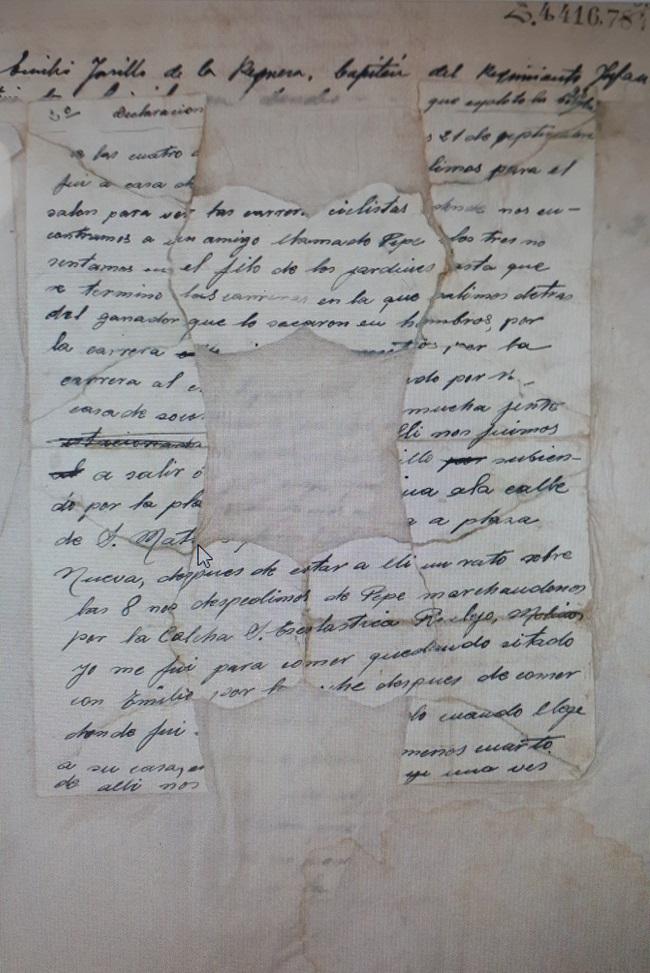 S.4416.78
Emilio Jarillo de la Reguera, Capitán del Regimiento Infan
3º Declaracion que exploto la
a las cuatro s 21 de septiembre
fui a casa de limos para el
salon para ver las carrera ciclistas donde nos en-
contramos a un amigo llamado Pepe los tres no
sentamos en el filo de los jardines asta que
se termino las carreras en la que salimos detras
del ganador que lo sacaron en hombros, por
la carrera por la
carrera al c ndo por
casa de soco mucha jente
lli nos fuimos
a salir subien-
do por la pla ala calle
de S. Mat a plaza
Nueva, despues de estar a lli un rato sobre
las 8 nos despedimos de Pepe marchandonos
por la Calcha S. Escolastica
yo me fui para comer quedando sitado
con Emilio por la che despues de comer
donde fui lo cuando llege
a su casa, menos cuarto
de alli nos una ves